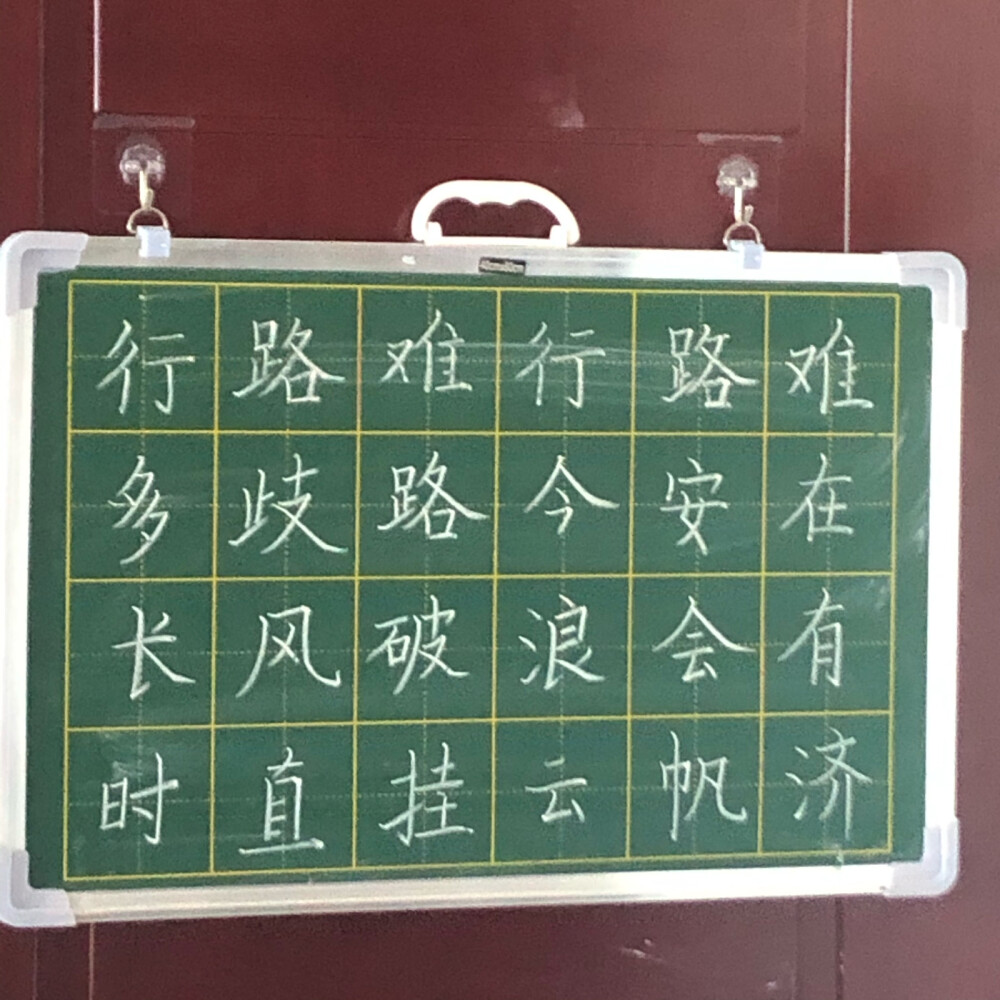 行路难行路难
多歧路今安在
长风破浪会有
时直挂云帆济